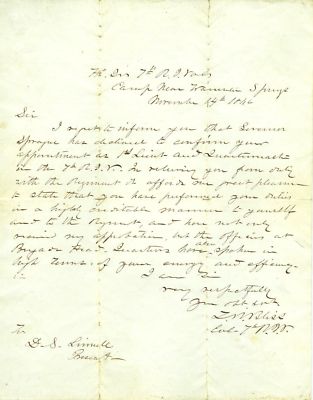 Hd. Qrs 7th R.I. Vols
Camp Near Warrenton Springs
November 14th 18
Sir
I regret to inform you that Governor
Sprague has declined to confirm your
appointment as 1st Lieut and Quartermaster
in the 7th R.I.V. In relieving you from duty
with the Regiment it affords me great pleasure
to state that you have performed your duties
in a highly creditable manner to yourself
and to the Regiment, and have not only
received my approbation, but the officers at
Brigade Head Quarters have also spoken in
high terms of your energy and efficiency.
I am Sir
very respectfully
your obt. svt
Z.R. Bliss
Col 7th R.I.V.
To
D. S. Linnell
Present